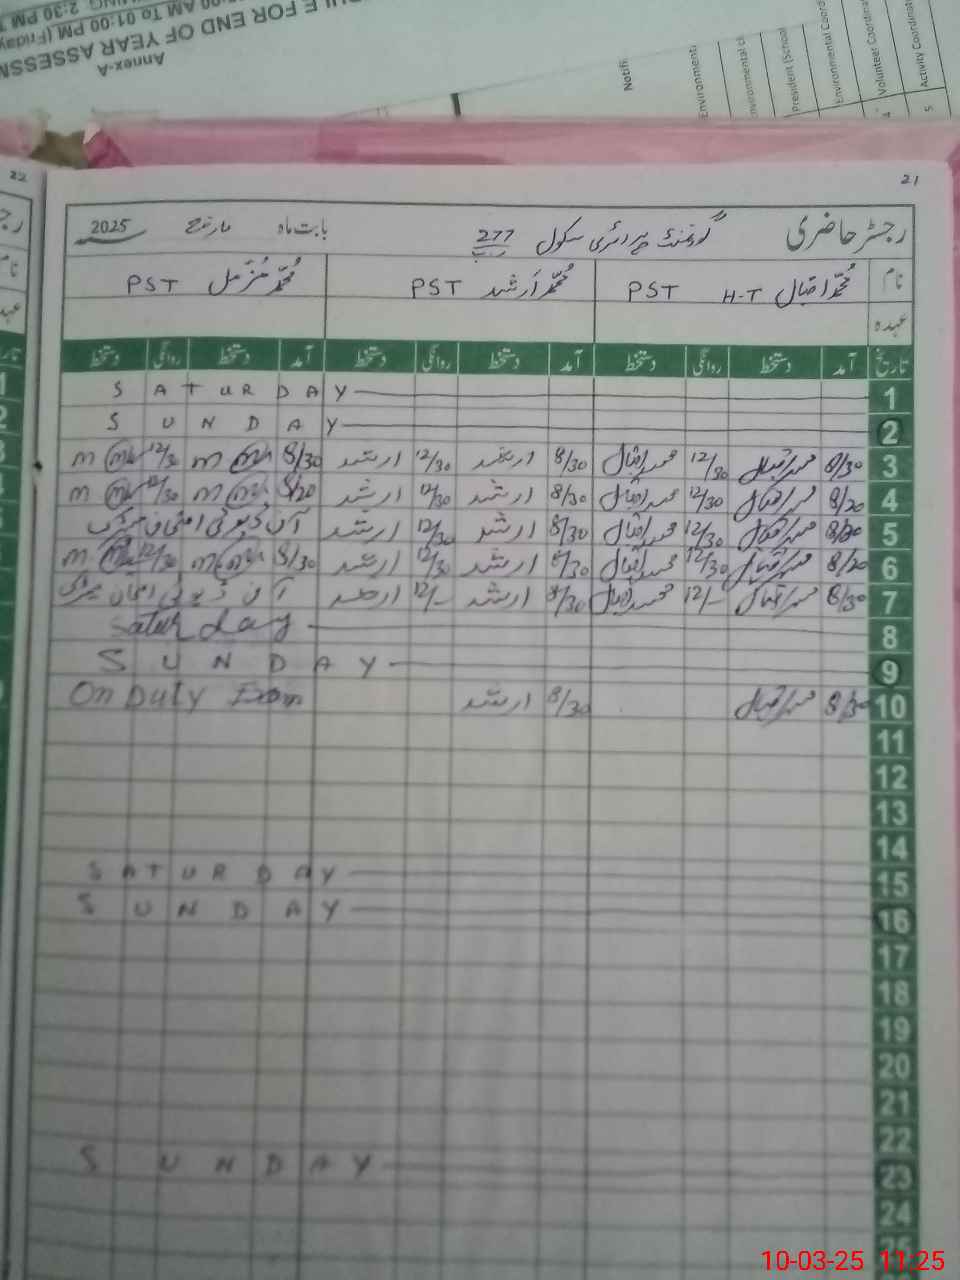 2:30 PM
00 AM To 01:00 PM (Friday
ULE FOR END OF YEAR ASSESSM
Annex-A
Notifi
Environmenta
Environmental cl
President (School
Environmental Coord
4 Volunteer Coordina
5 Activity Coordinat
22
21
رجسٹر حاضری گورنمنٹ پرائمری سکول 277 بابت ماہ مارچ 2025
نام محمد اقبال H-T PST محمد ارشد PST محمد مزمل PST
عہدہ
تاریخ آمد دستخط روانگی دستخط آمد دستخط روانگی دستخط آمد دستخط روانگی دستخط
1 SATURDAY
2 SUNDAY
3 8/30 محمد اقبال 12/30 محمد اقبال 8/30 ارشد 12/30 ارشد 8/30 m 12/30 m
4 8/20 محمد اقبال 12/30 محمد اقبال 8/30 ارشد 12/30 ارشد 8/20 m 12/30 m
5 محمد اقبال 12/30 محمد اقبال 8/30 ارشد 12/30 ارشد آن ڈیوٹی امتحان میٹرک
6 8/20 محمد اقبال 12/30 محمد اقبال 8/30 ارشد 12/30 ارشد 8/30 m 12/30 m
7 8/30 محمد اقبال 12/- محمد اقبال 8/30 ارشد 12/- ارشد آن ڈیوٹی امتحان میٹرک
8 Saturday
9 SUNDAY
10 8/30 محمد اقبال 8/30 ارشد On Duty Exam
11
12
13
14
15 SATURDAY
16 SUNDAY
17
18
19
20
21
22
23 SUNDAY
24
25
10-03-25 11:25